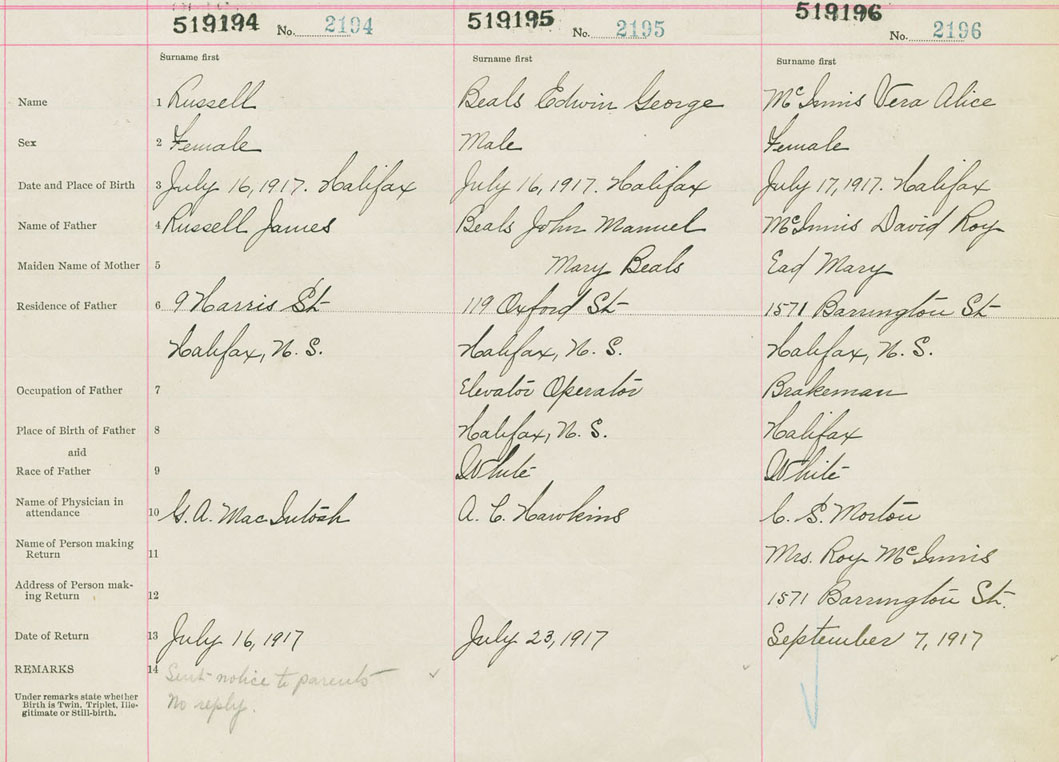 519194 No. 2194 519195 No. 2195 519196 No. 2196
Surname first Surname first Surname first
Name 1 Russell Beals Edwin George McInnis Vera Alice
Sex 2 Female Male Female
Date and Place of Birth 3 July 16, 1917. Halifax July 16, 1917. Halifax July 17, 1917. Halifax
Name of Father 4 Russell James Beals John Manuel McInnis David Roy
Maiden Name of Mother 5 Mary Beals Ead Mary
Residence of Father 6 9 Harris St 119 Oxford St 1571 Barrington St
Halifax, N. S. Halifax, N. S. Halifax, N. S.
Occupation of Father 7 Elevator Operator Brakeman
Place of Birth of Father 8 Halifax, N. S. Halifax
and
Race of Father 9 White White
Name of Physician in
attendance 10 G. A. MacIntosh A. C. Hawkins C. S. Morton
Name of Person making
Return 11 Mrs. Roy McInnis
Address of Person mak-
ing Return 12 1571 Barrington St.
Date of Return 13 July 16, 1917 July 23, 1917 September 7, 1917
REMARKS 14 Sent notice to parents
No reply.
Under remarks state whether
Birth is Twin, Triplet, Ille-
gitimate or Still-birth.